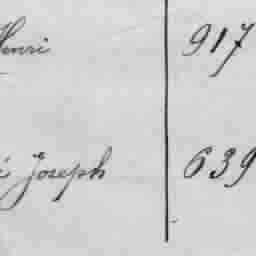 Henri 917
Joseph 639